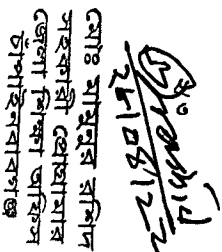 মোঃ মামুনুর রশিদ
সহকারী প্রোগ্রামার
জেলা শিক্ষা অফিস
চাঁপাইনবাবগঞ্জ